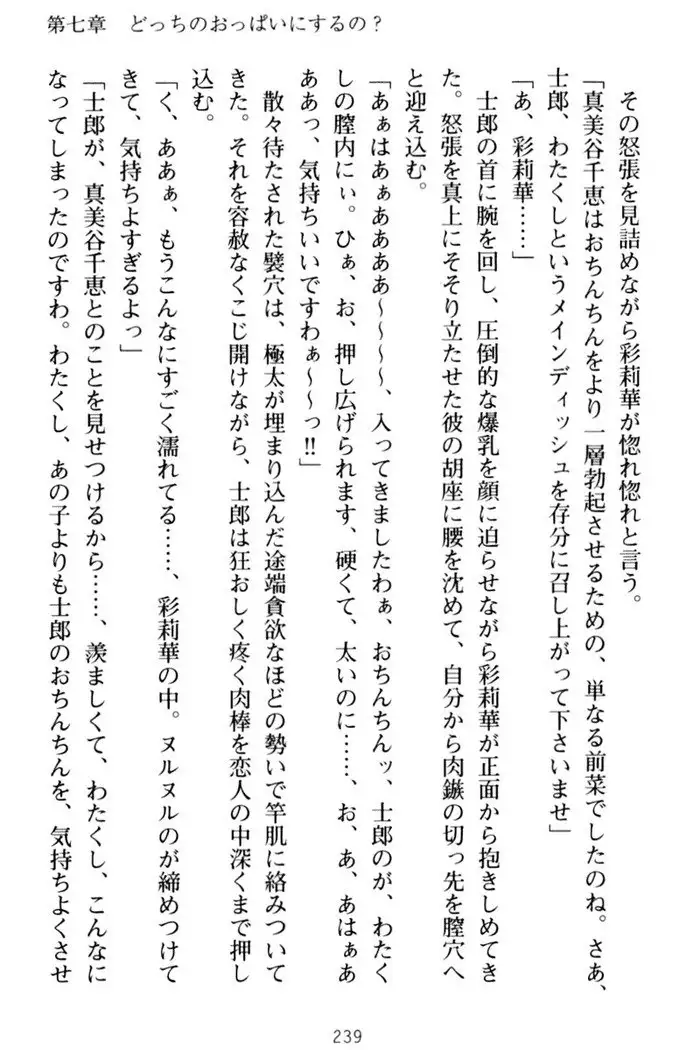 第七章　どっちのおっぱいにするの？
　その怒張を見詰めながら彩莉華が惚れ惚れと言う。
「真美谷千恵はおちんちんをより一層勃起させるための、単なる前菜でしたのね。さあ、
士郎、わたくしというメインディッシュを存分に召し上がって下さいませ」
「あ、彩莉華……」
　士郎の首に腕を回し、圧倒的な爆乳を顔に迫らせながら彩莉華が正面から抱きしめてき
た。怒張を真上にそそり立たせた彼の胡座に腰を沈めて、自分から肉鏃の切っ先を膣穴へ
と迎え込む。
「あぁはあぁああああ～～～～、入ってきましたわぁ、おちんちんッ、士郎のが、わたく
しの膣内にぃ。ひぁ、お、押し広げられます、硬くて、太いのに……、お、あ、あはぁあ
ああっ、気持ちいいですわぁ～～っ!!」
　散々待たされた襞穴は、極太が埋まり込んだ途端貪欲なほどの勢いで竿肌に絡みついて
きた。それを容赦なくこじ開けながら、士郎は狂おしく疼く肉棒を恋人の中深くまで押し
込む。
「く、ああぁ、もうこんなにすごく濡れてる……、彩莉華の中。ヌルヌルのが締めつけて
きて、気持ちよすぎるよっ」
「士郎が、真美谷千恵とのことを見せつけるから……、羨ましくて、わたくし、こんなに
なってしまったのですわ。わたくし、あの子よりも士郎のおちんちんを、気持ちよくさせ
239